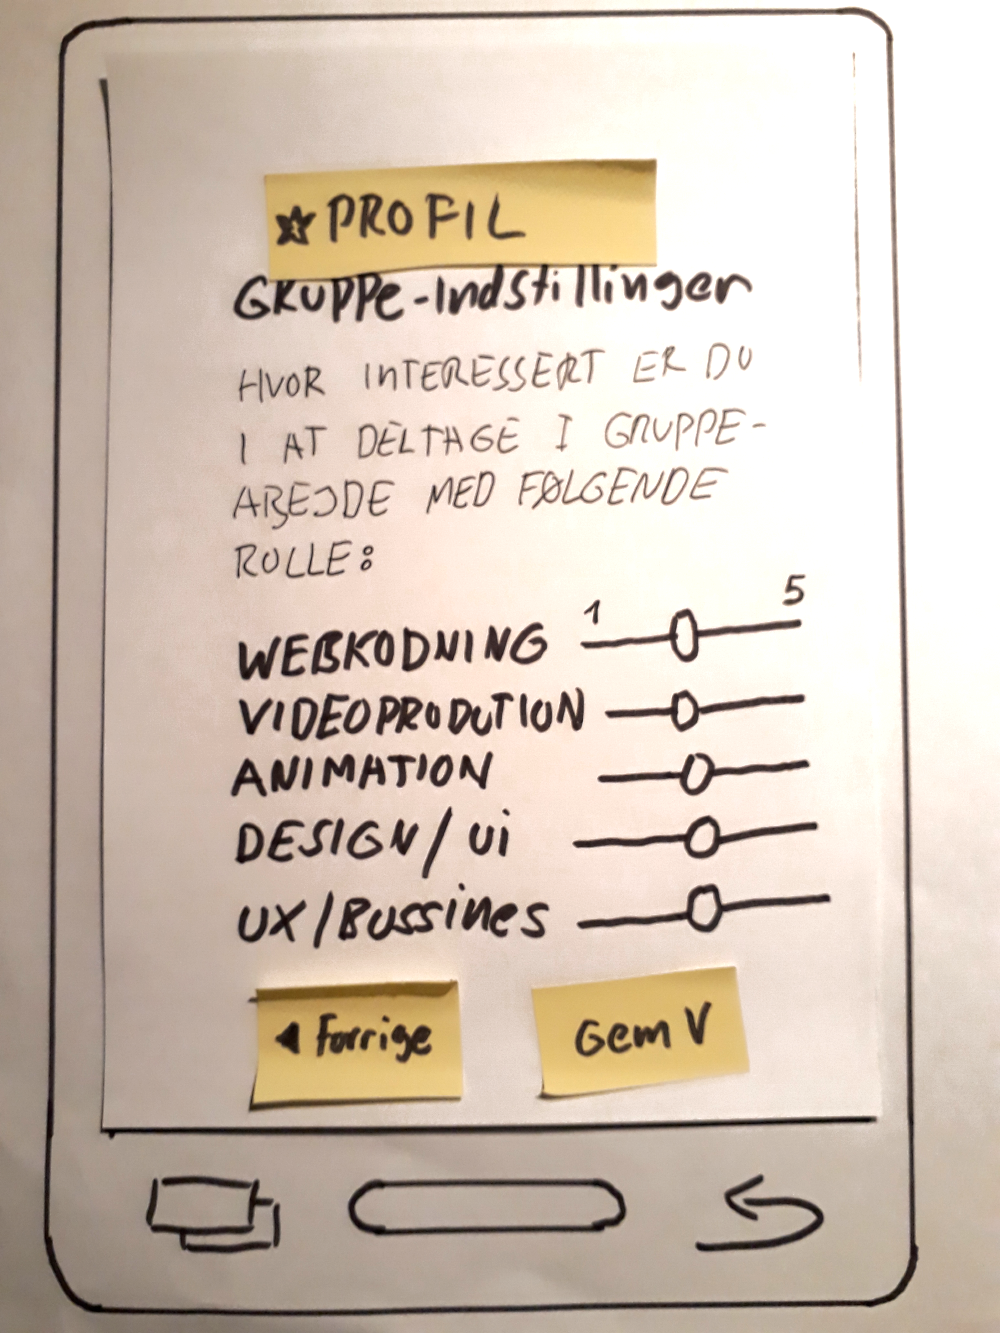 PROFIL
GRUPPe-Indstillinger
HVOR INTERESSERT ER DU
I AT DELTAGE I GRUPPE-
ARBEJDE MED FØLGENDE
ROLLE:
1 5
WEBKODNING
VIDEOPRODUTION
ANIMATION
DESIGN/Ui
UX/Bussines
Forrige
Gem V